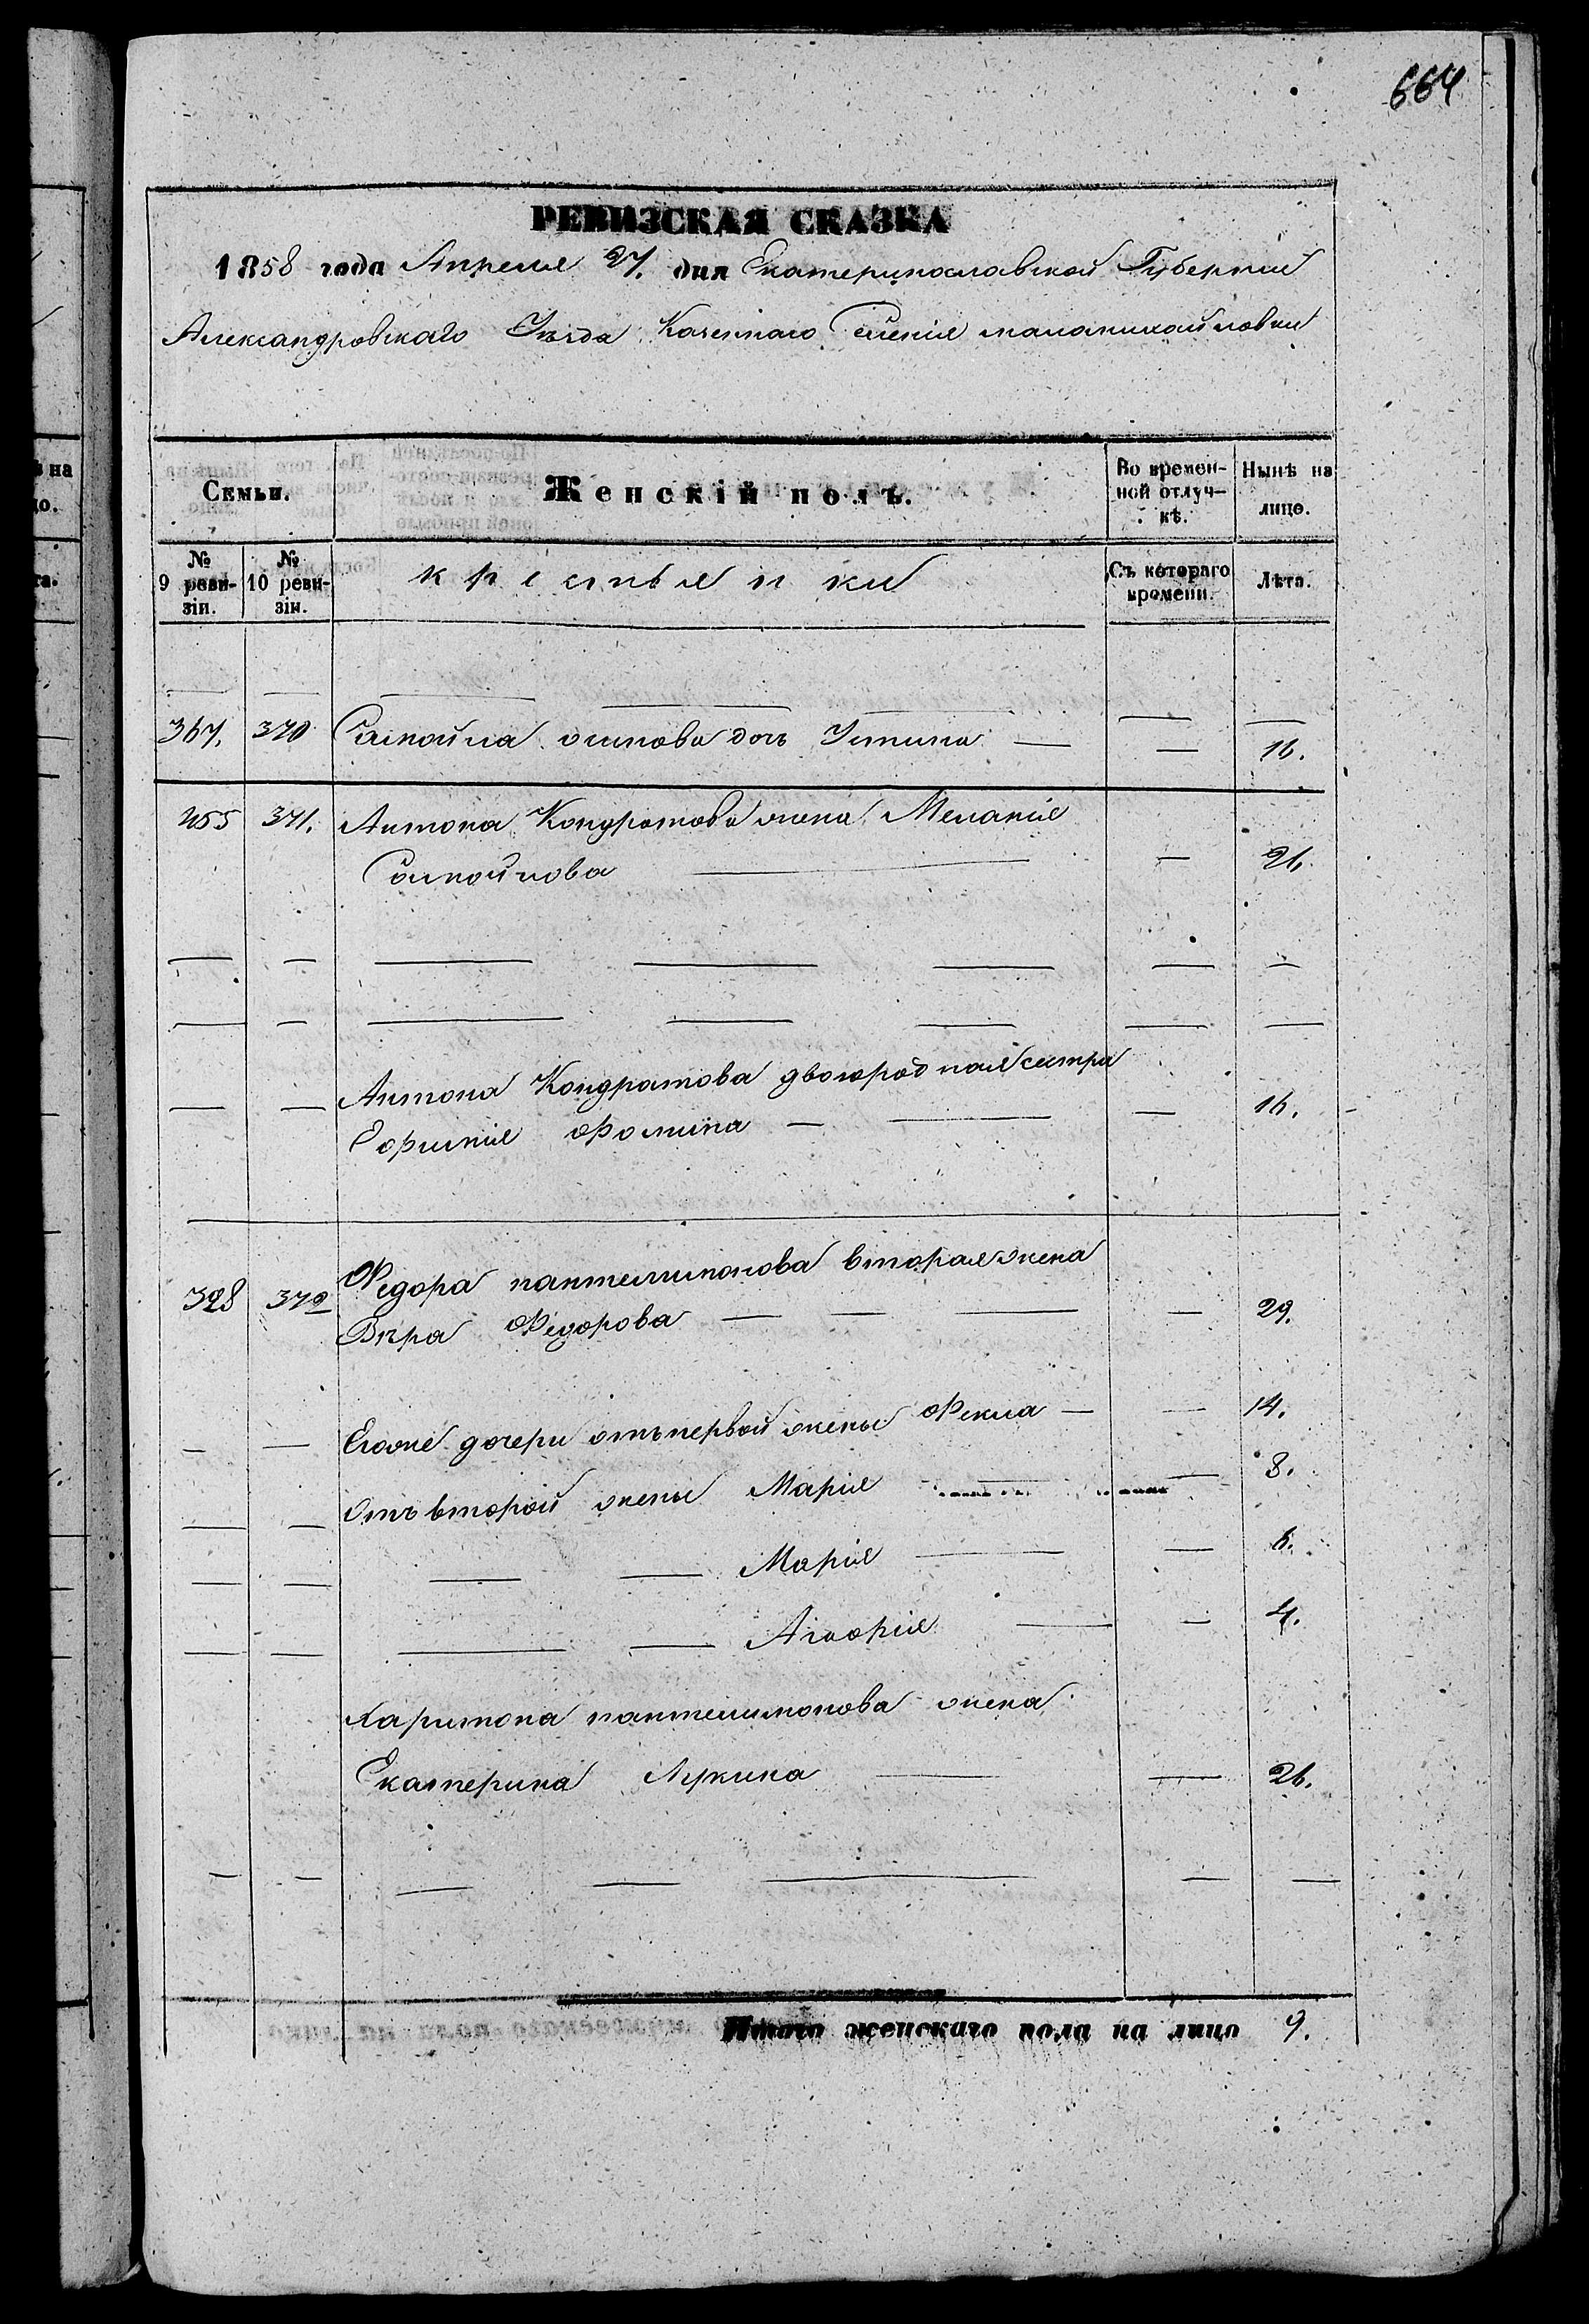 664
на
РЕВИЗСКАЯ СКАЗКА
1858 года Апреля 27. дня Екатеринославской Губерніи
Александровскаго Уѣзда Казеннаго Селенія маломихайловки
Семьи.
Женскій полъ.
Во времен-
ной отлуч-
кѣ.
Нынѣ на
лицо.
№
9 реви-
зіи.
№
10 реви-
зіи.
крестьянки
Съ котораго
времени.
Лѣта.
367. 370 Самойла дочь Устина — — 16.
455 371. Антона Кондратова жена Меланія
Самойлова — — 26.
Антона Кондратова двоюродная сестра
Евфимія Фомина — — 16.
328 372 Федора пантелимонова вторая жена
Вѣра Федорова — — 29.
Егоже дочери отъ первой жены Фекла — — 14.
Отъ второй жены Марія — 8.
— — Марія — — 6.
— — Агафія — — 4.
Харитона пантелимонова жена
Екатерина Лукина — — 26.
Итого женскаго пола на лицо 9.